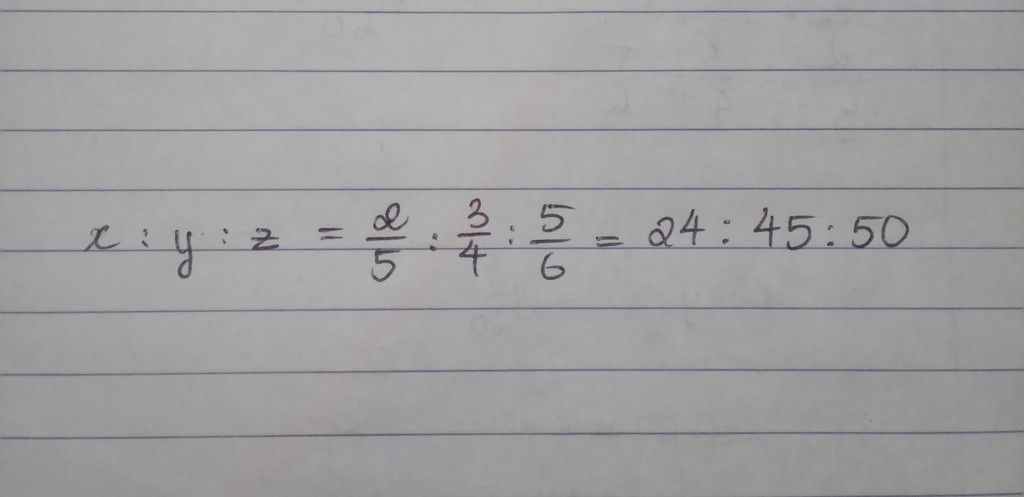 x : y : z = 2/5 : 3/4 : 5/6 = 24 : 45 : 50